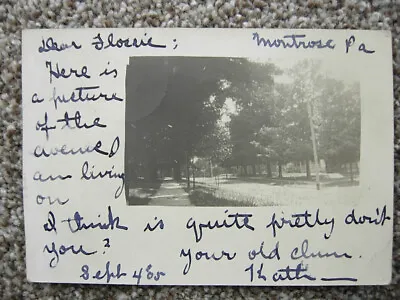 Dear Flossie; Montrose Pa
Here is
a picture
of the
avenue I
am living
on
I think is quite pretty don't
you? your old chum.
Sept 4 05 Kath